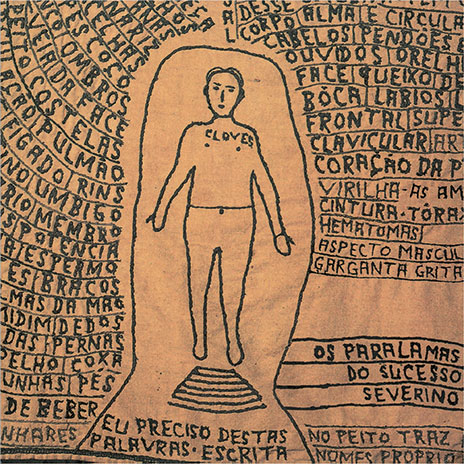 NARIS
CELHAS
PÉS COÇO
VEIA DA FACE
OMBROS
PEITO COSTELAS
PULMÃO
FIGADO RINS
UMBIGO
MEMBRO
POTENCIA
BRAÇOS
DA MAO
DEDOS
DAS PERNAS
COXA
UNHAS PÉS
DE BEBER
NHARES
CLOVES
DESSE
CORPO ALMA E CIRCULA
CABELOS PENDÕES E
OUVIDOS ORELH
FACE QUEIXO DE
BÔCA LABIOS L
FRONTAL SUPE
CLAVICULAR AR
CORAÇÃO DA P
VIRILHA-AS AM
CINTURA-TÓRA
HEMATOMAS
ASPECTO MASCUL
GARGANTA GRITA
OS PARALAMAS
DO SUCESSO
SEVERINO
EU PRECISO DESTAS
PALAVRAS-ESCRITA
NO PEITO TRAZ
NOMES PROPRIO